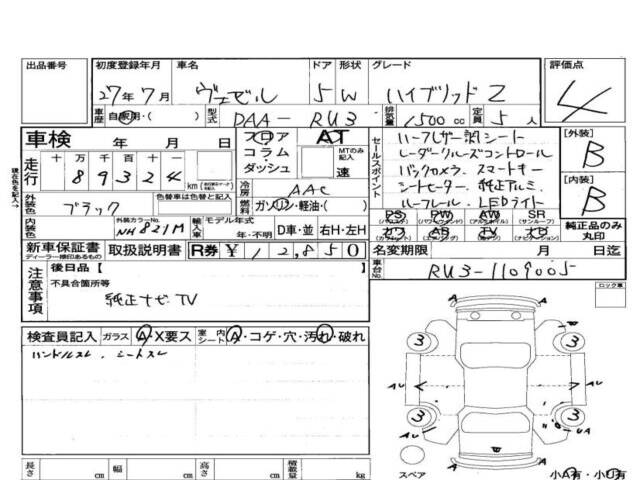 出品番号 初度登録年月 車名 ドア 形状 グレード 評価点
27年7月 ヴェゼル 5 W ハイブリッド Z 4
車歴 自家用・( ) 型式 DAA- RU3 排気量 1500cc 定員 5人
車検 年 月 日 シフト フロア AT セールスポイント ハーフレザー調シート [外装] B
走行 十 万 千 百 十 一 コラム・ダッシュ MTのみ記入 速 レーダークルーズコントロール
89324 km 冷房 AAC バックカメラ、スマートキー [内装] B
外装色 ブラック 色替車は色替と記入 燃料 ガソリン・軽油・( ) シートヒーター、純正アルミ、
ルーフレール、LEDライト
内装色 外装カラーNo. NH821M 輸入車 モデル年式 年・不明 D車・並 右H・左H
PS PW AW SR
カワ AB TV ナビ 純正品のみ丸印
新車保証書 ディーラー捺印あるもの 取扱説明書 R券 ¥12,850 名変期限 月 日迄
注意事項 後日品【 】 車台No. RU3-1109005
不具合箇所等 ロック車
純正ナビ TV
検査員記入 ガラス A・X要ス 室内シート A・コゲ・穴・汚れ・破れ
ハンドルスレ、シートスレ
A
3 3
AU AU
3 3
AU
A
スペア 小A有・小U有
長さ cm 幅 cm 高さ cm 積載量 kg
現在色を記入→